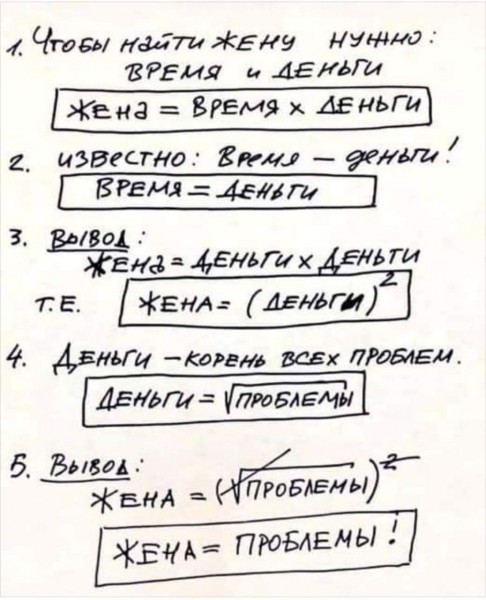 1. Чтобы найти жену нужно:
время и деньги
Жена = время x деньги
2. известно: Время – деньги!
время = деньги
3. Вывод:
Жена = Деньги x Деньги
т.е. Жена = (деньги)²
4. Деньги – корень всех проблем.
Деньги = √проблемы
5. Вывод:
Жена = (√проблемы)²
Жена = проблемы!